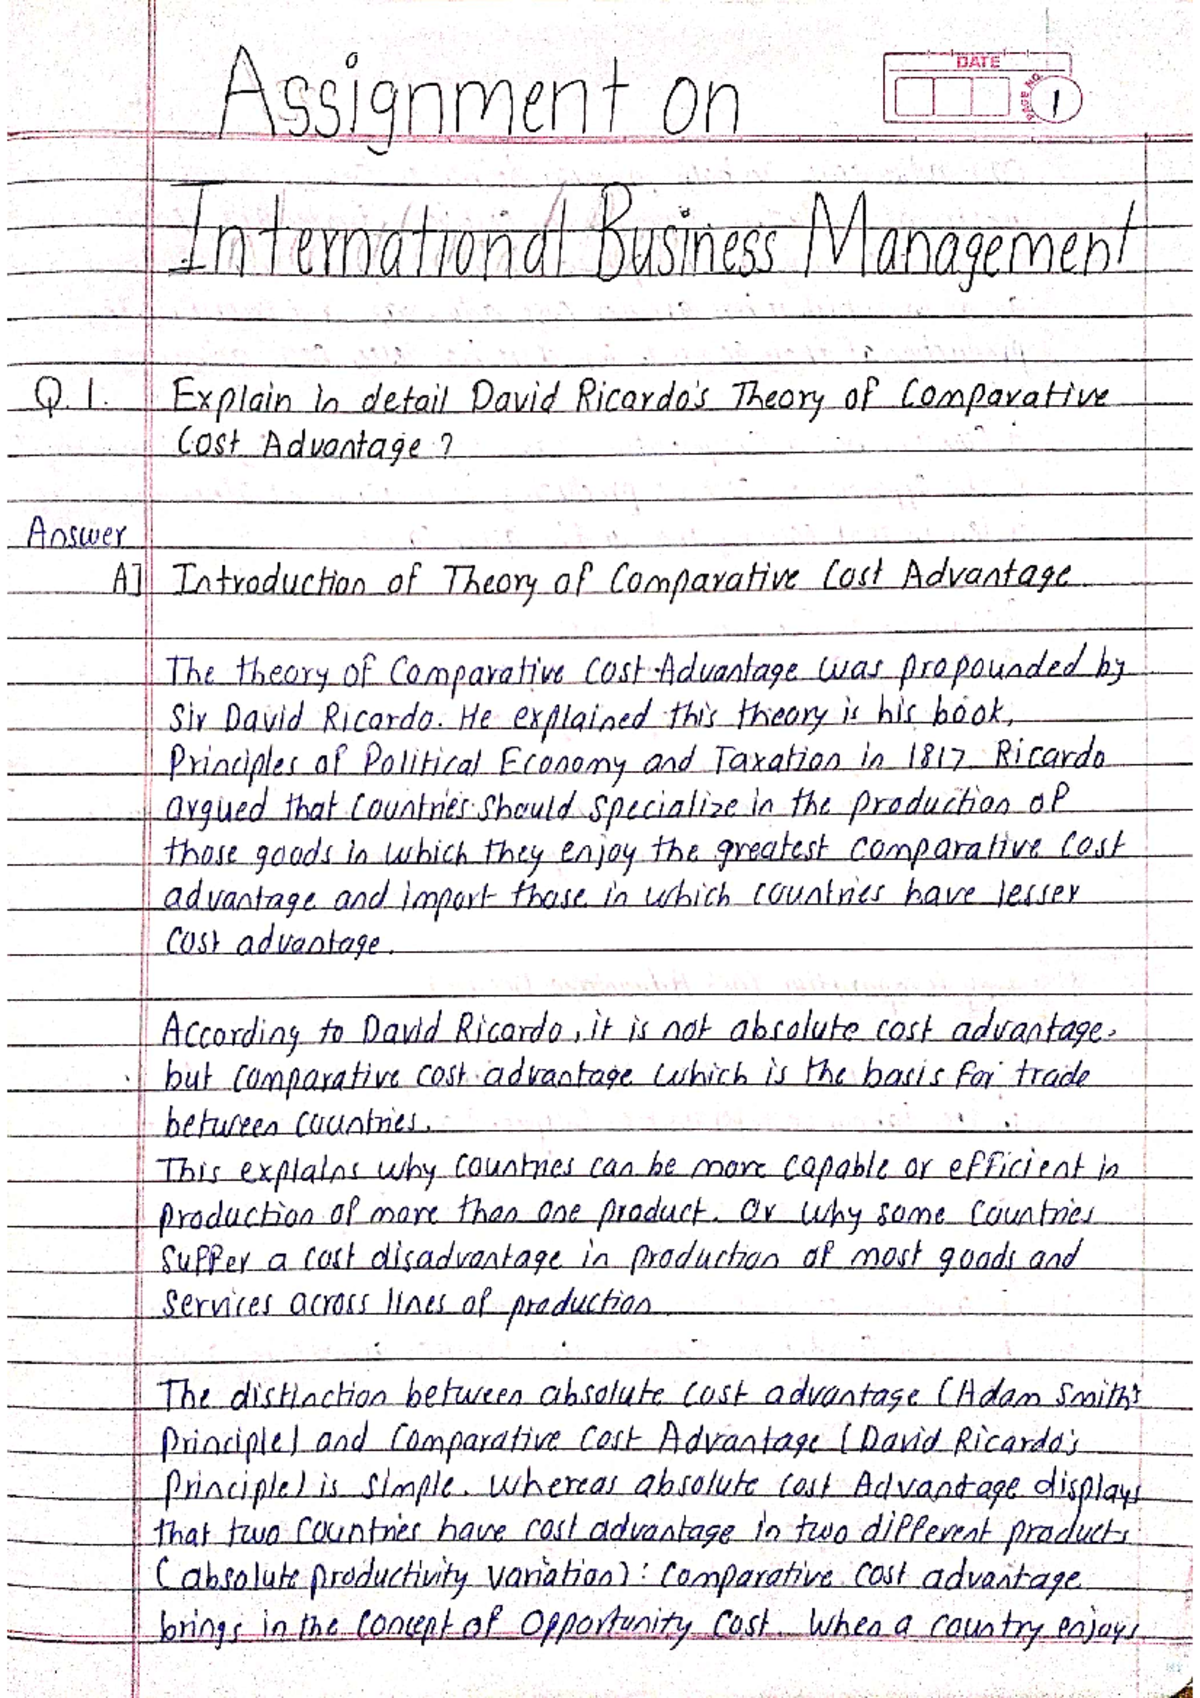 Assignment on
DATE
PAGE NO.
1
International Business Management
Q.1. Explain in detail David Ricardo's Theory of Comparative
Cost Advantage ?
Answer
A] Introduction of Theory of Comparative Cost Advantage
The theory of Comparative Cost Advantage was propounded by
Sir David Ricardo. He explained this theory is his book,
Principles of Political Economy and Taxation in 1817. Ricardo
argued that countries should specialize in the production of
those goods in which they enjoy the greatest comparative cost
advantage and import those in which countries have lesser
cost advantage.
According to David Ricardo, it is not absolute cost advantage.
but comparative cost advantage which is the basis for trade
between countries.
This explains why countries can be more capable or efficient in
production of more than one product. Or why some countries
suffer a cost disadvantage in production of most goods and
services across lines of production
The distinction between absolute cost advantage (Adam Smith's
Principle) and Comparative Cost Advantage (David Ricardo's
Principle) is simple. Whereas absolute cost Advantage displays
that two countries have cost advantage in two different products
(absolute productivity variation): Comparative cost advantage
brings in the concept of Opportunity Cost. When a country enjoys